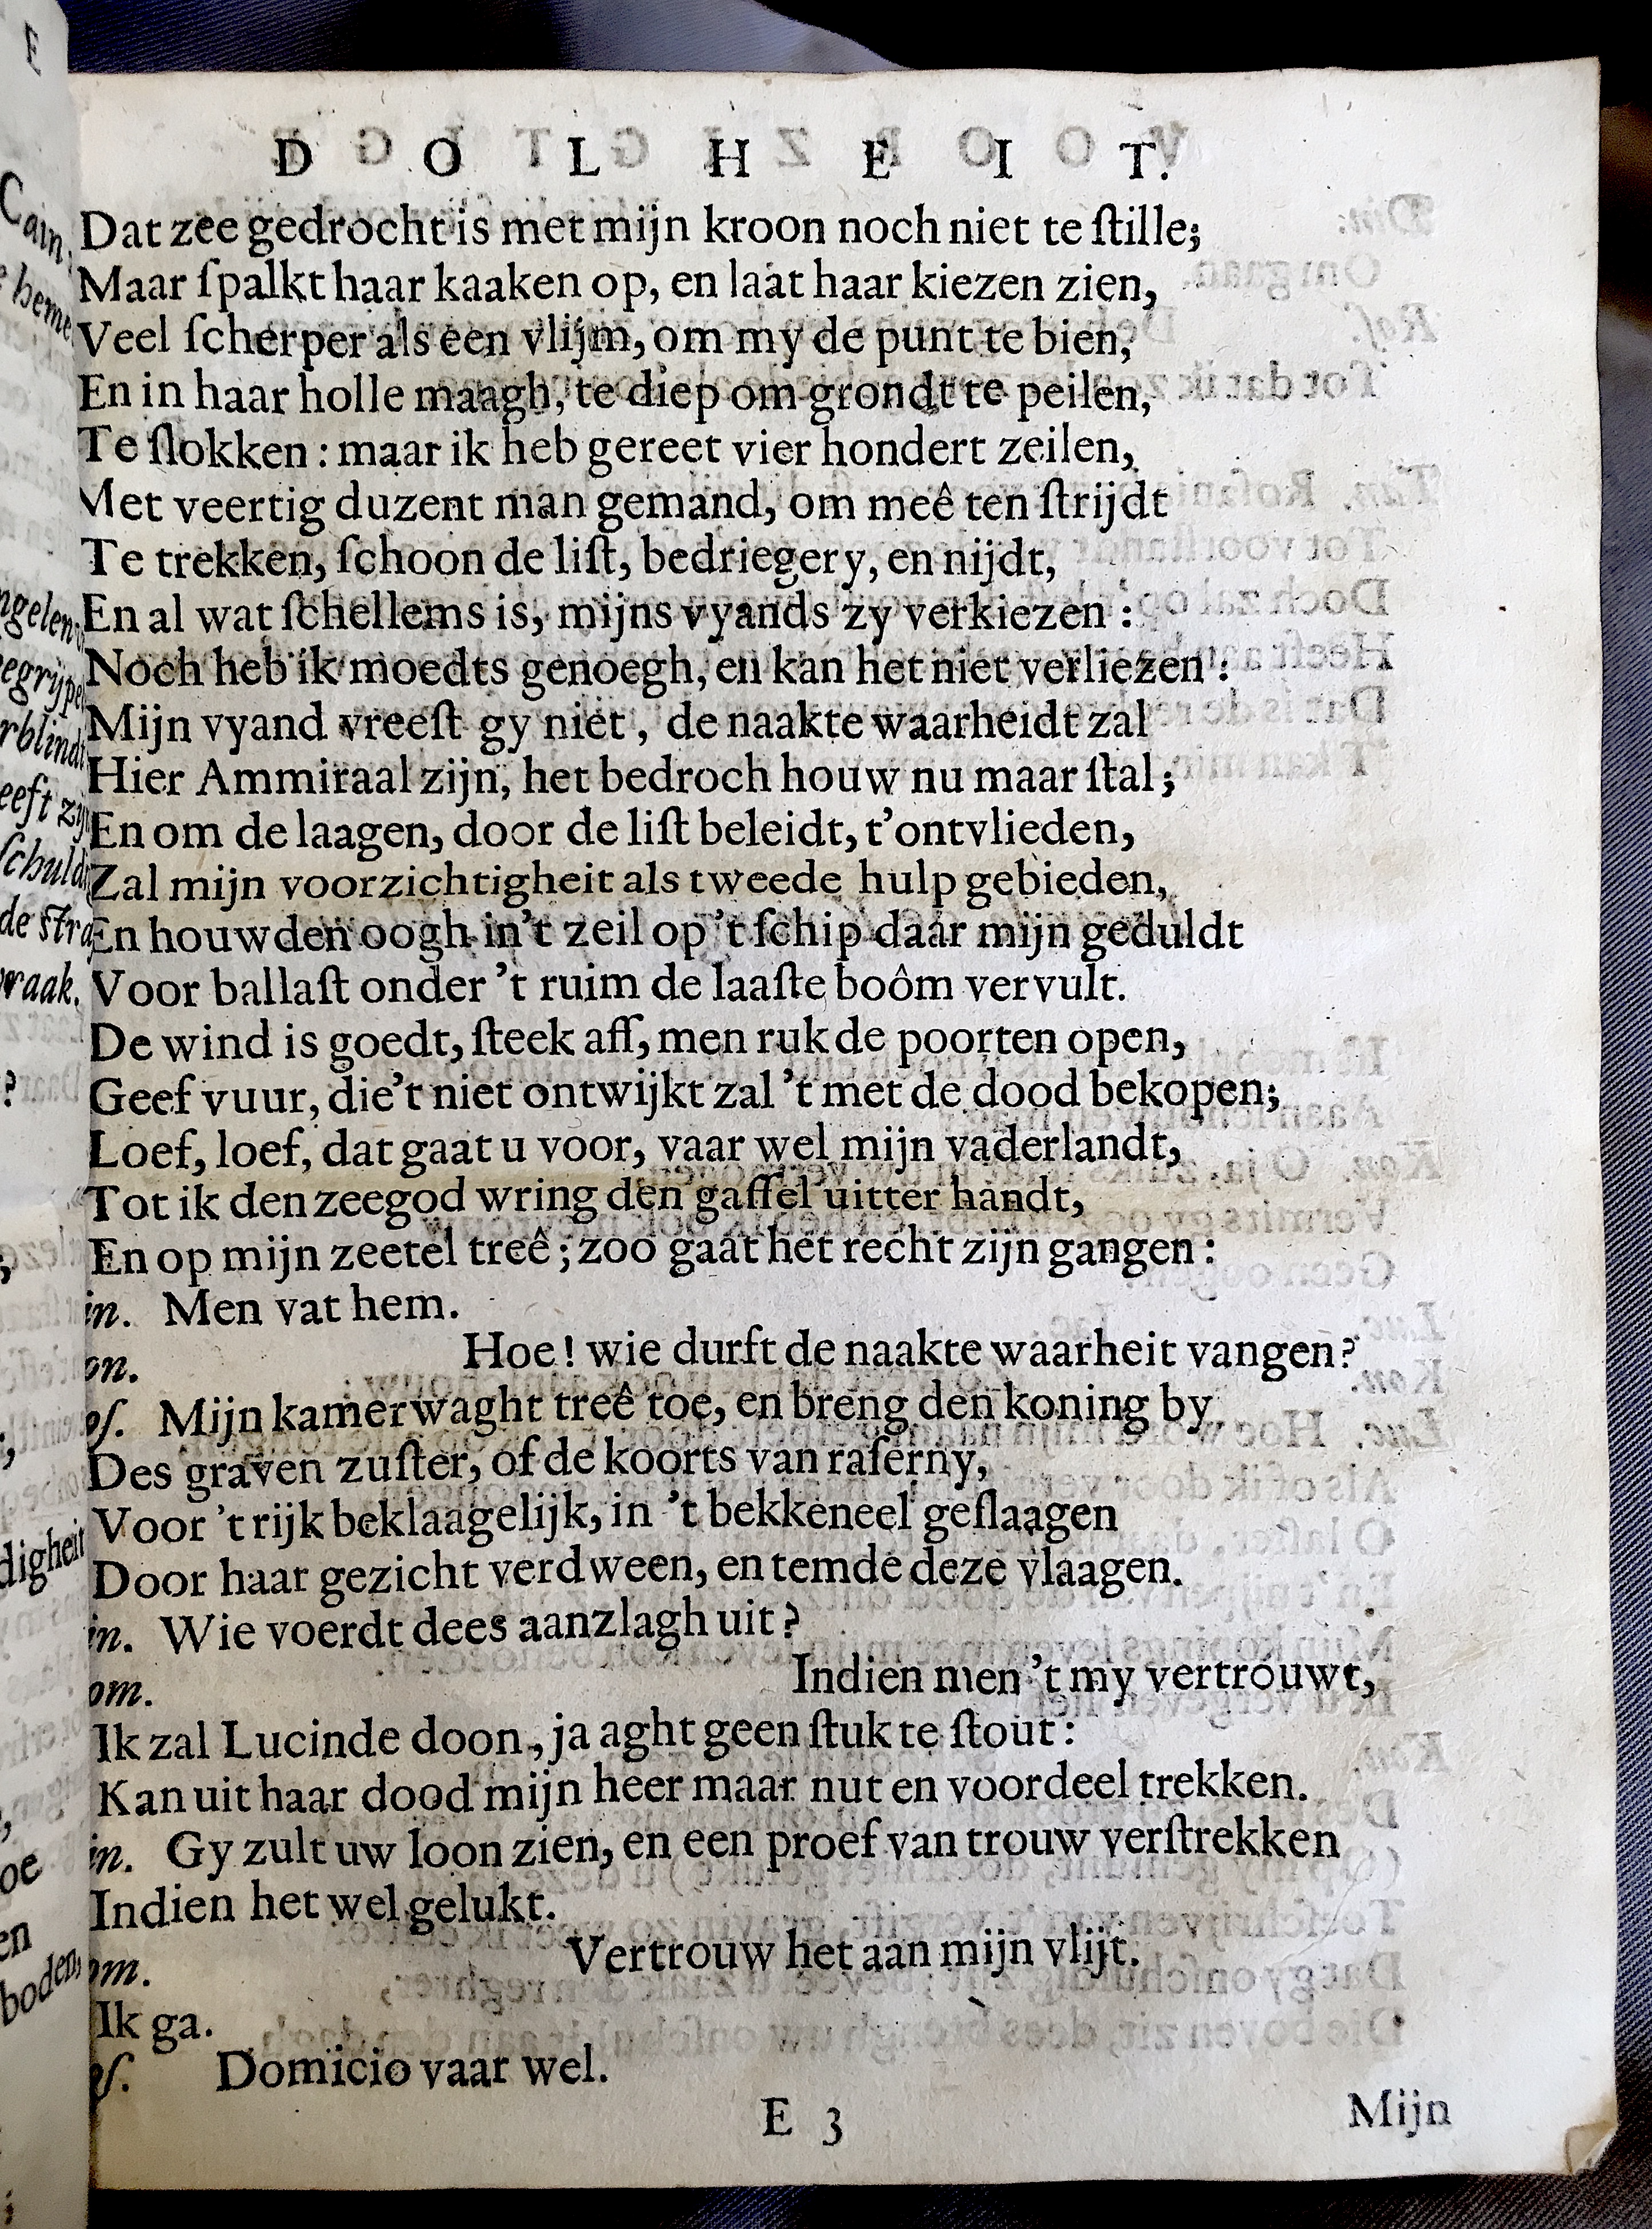 D O L H E I T.
Dat zee gedrocht is met mijn kroon noch niet te ſtille;
Maar ſpalkt haar kaaken op, en laat haar kiezen zien,
Veel ſcherper als een vlijm, om my de punt te bien,
En in haar holle maagh, te diep om grondt te peilen,
Te ſlokken: maar ik heb gereet vier hondert zeilen,
Met veertig duzent man gemand, om meê ten ſtrijdt
Te trekken, ſchoon de liſt, bedriegery, en nijdt,
En al wat ſchellems is, mijns vyands zy verkiezen:
Noch heb ik moedts genoegh, en kan het niet verliezen:
Mijn vyand vreeſt gy niet, de naakte waarheidt zal
Hier Ammiraal zijn, het bedroch houw nu maar ſtal;
En om de laagen, door de liſt beleidt, t'ontvlieden,
Zal mijn voorzichtigheit als tweede hulp gebieden,
En houw den oogh in't zeil op 't ſchip daar mijn geduldt
Voor ballaſt onder 't ruim de laaſte boôm vervult.
De wind is goedt, ſteek aff, men ruk de poorten open,
Geef vuur, die't niet ontwijkt zal 't met de dood bekopen;
Loef, loef, dat gaat u voor, vaar wel mijn vaderlandt,
Tot ik den zeegod wring den gaffel uitter handt,
En op mijn zeetel treê; zoo gaat het recht zijn gangen:
in. Men vat hem.
on. Hoe! wie durft de naakte waarheit vangen?
eſ. Mijn kamerwaght treê toe, en breng den koning by
Des graven zuſter, of de koorts van raſerny,
Voor 't rijk beklaagelijk, in 't bekkeneel geſlaagen
Door haar gezicht verdween, en temde deze vlaagen.
in. Wie voerdt dees aanzlagh uit?
om. Indien men 't my vertrouwt,
Ik zal Lucinde doon, ja aght geen ſtuk te ſtout:
Kan uit haar dood mijn heer maar nut en voordeel trekken.
in. Gy zult uw loon zien, en een proef van trouw verſtrekken
Indien het wel gelukt.
om. Vertrouw het aan mijn vlijt.
Ik ga.
eſ. Domicio vaar wel.
E 3 Mijn